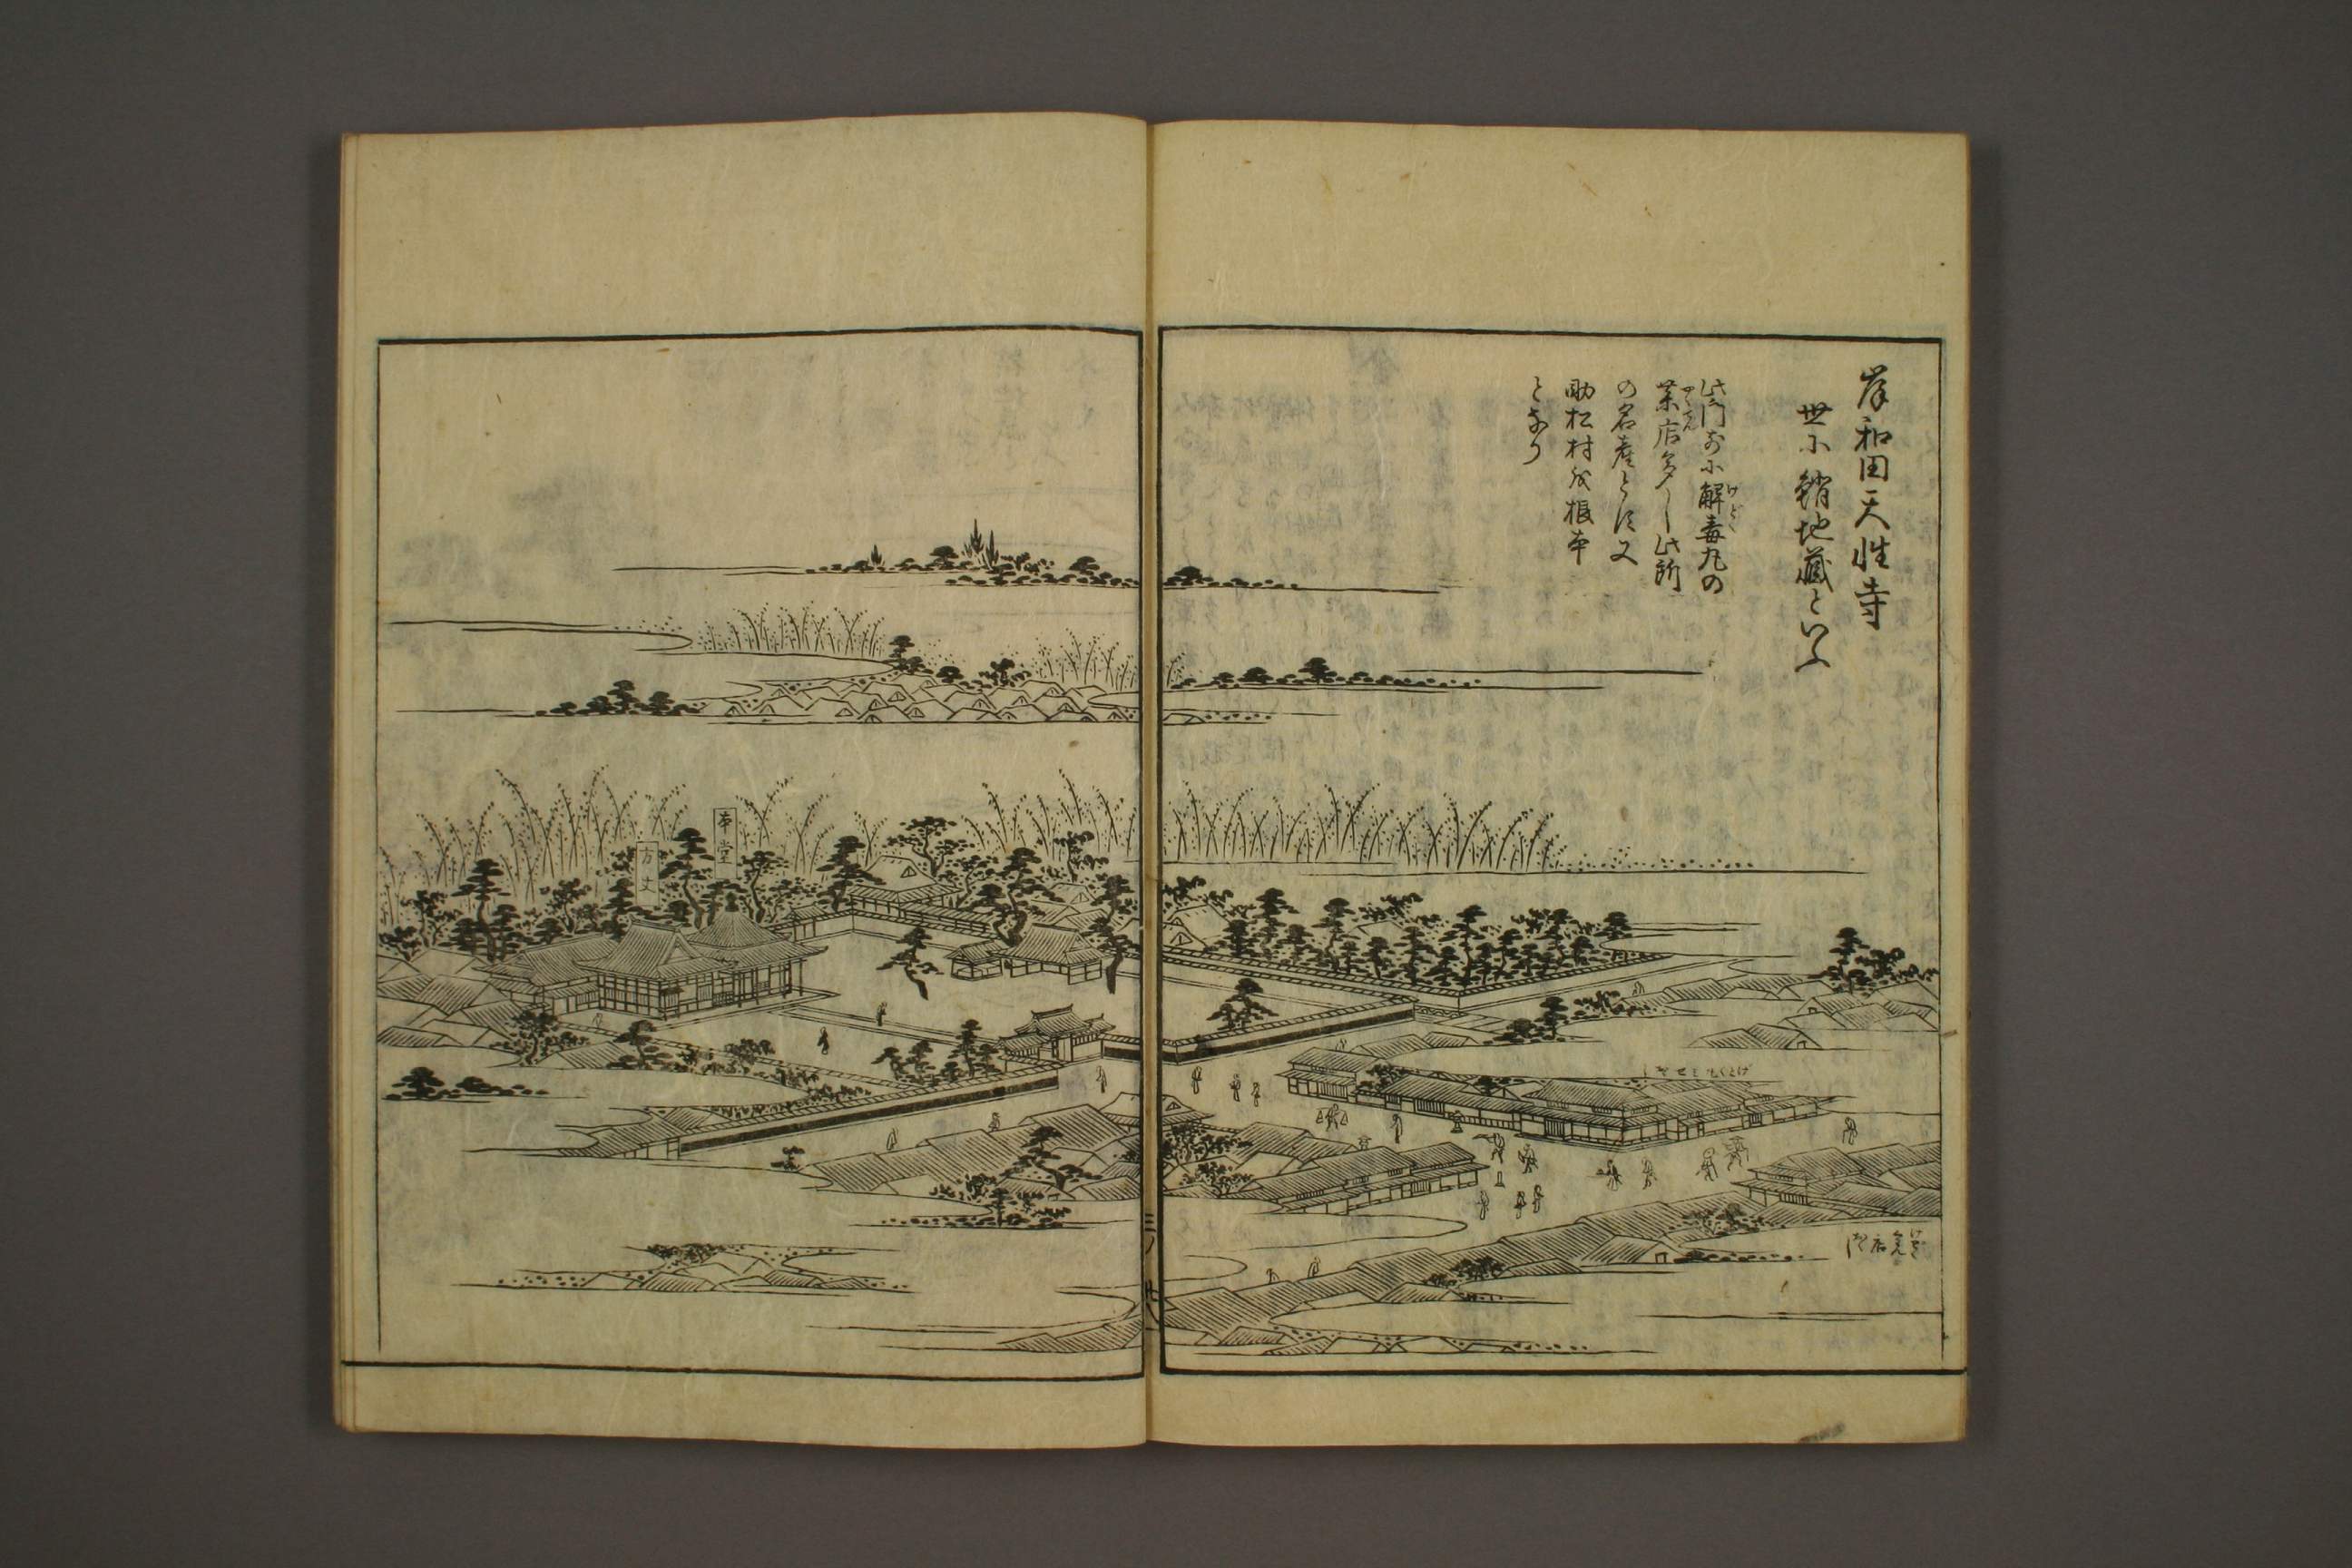 岸和田天性寺
世に蛸地蔵といふ
此門前に解毒丸の
薬店多し此所
の名産とす又
助松村を根本
となり
けどく
やくてん
本堂
方丈
三ノ